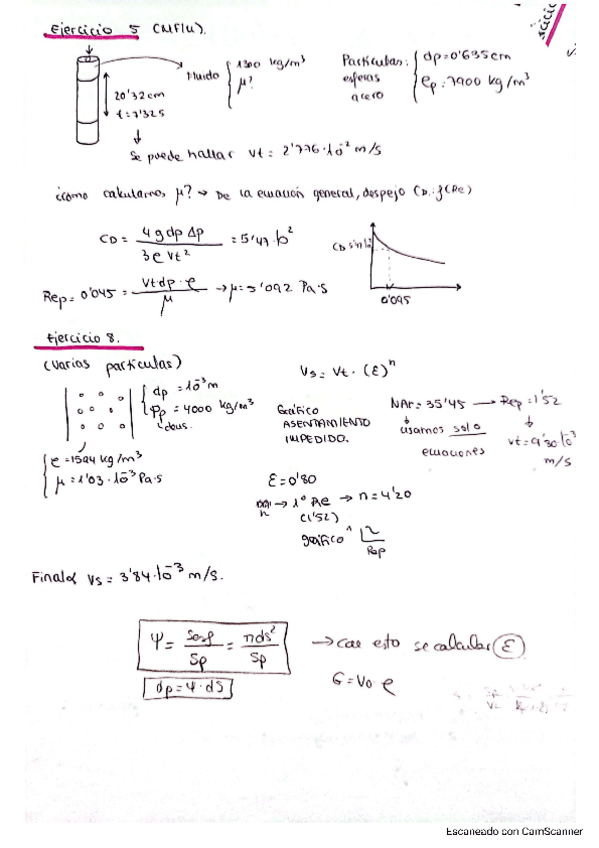 Ejercicio 5 (NFlu).
Fluido { 1300 kg/m³
μ?
Partículas: { dp=0'635cm
esferas
acero
ep: 7900 kg/m³
20'32cm
t=7'32s
Se puede hallar vt = 2'776·10⁻² m/s
¿como calculamos, μ? → De la ecuación general, despejo CD. f(Re)
CD = 4 g dp Δp / 3 e vt² = 5'47·10²
CD
0'045
Rep = 0'045 = vt·dp·e / μ → μ = 5'092 Pa·s
Ejercicio 8.
(Varias partículas)
Vs = Vt · (ε)ⁿ
{ dp = 10⁻³ m
ρp = 4000 kg/m³
Gráfico
ASENTAMIENTO
IMPEDIDO.
NAr = 35'45 → Rep = 1'52
usamos solo
ecuaciones
vt = 9'30·10⁻³
m/s
{ e = 1594 kg/m³
μ = 1'03·10⁻³ Pa·s
ε = 0'80
n → 1º Re → n = 4'20
(1'52)
gráfico
n
Rep
Final Vs = 3'84·10⁻³ m/s.
Ψ = Sesf / Sp = πds² / Sp
→ con esto se calcular ε
dp = Ψ·ds
G = V0 e
Escaneado con CamScanner